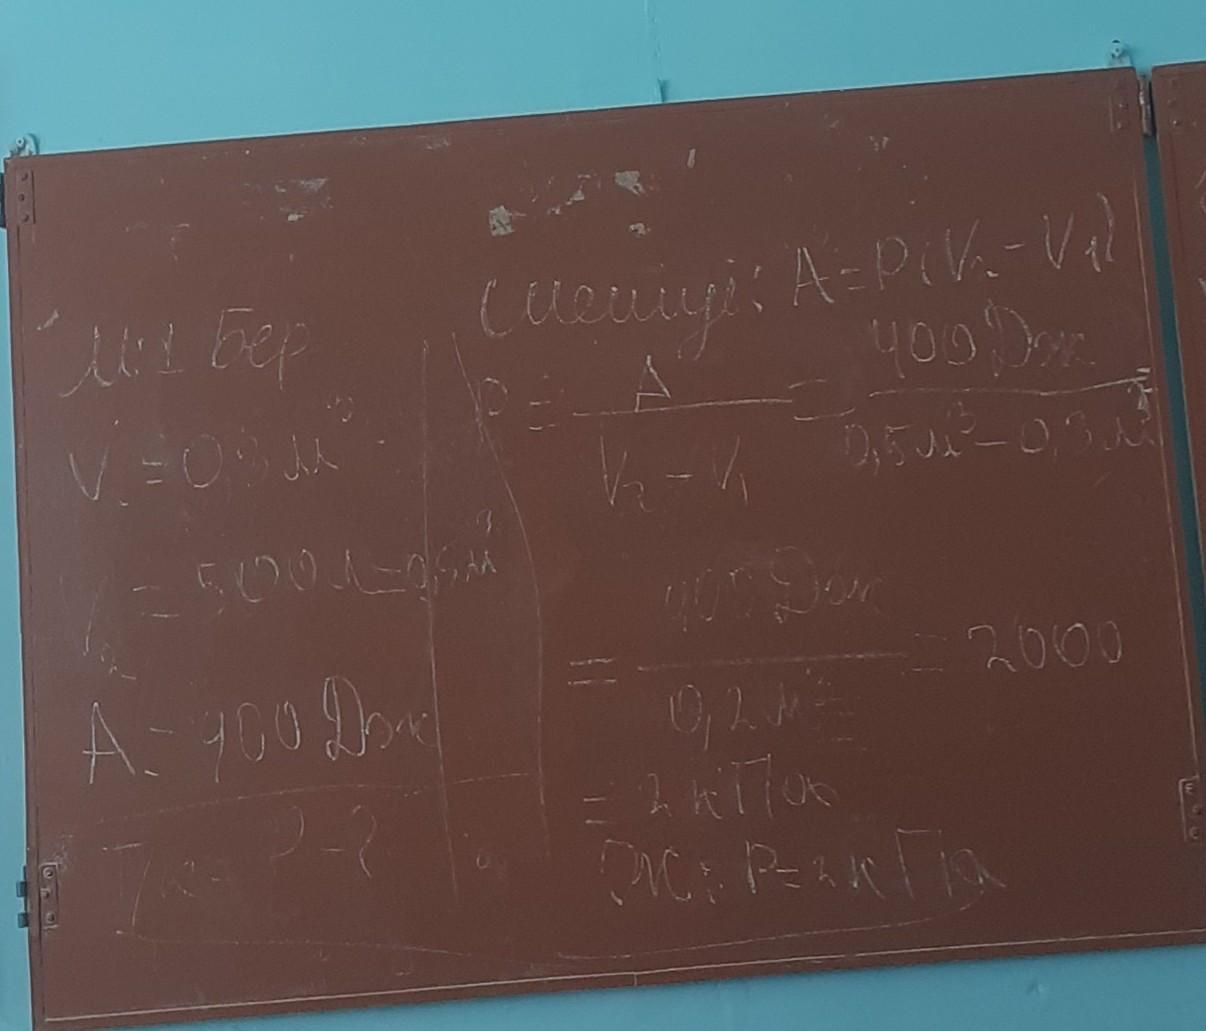 №1 Бер
V₁=0,3м³
V₂=500л=0,5м³
A=400Дж
Т/к- P-?
Шешуі: A=P(V₂-V₁)
P = A / V₂-V₁ = 400Дж / 0,5м³-0,3м³ =
= 400Дж / 0,2м³ = 2000
= 2кПа
Ж: P=2кПа